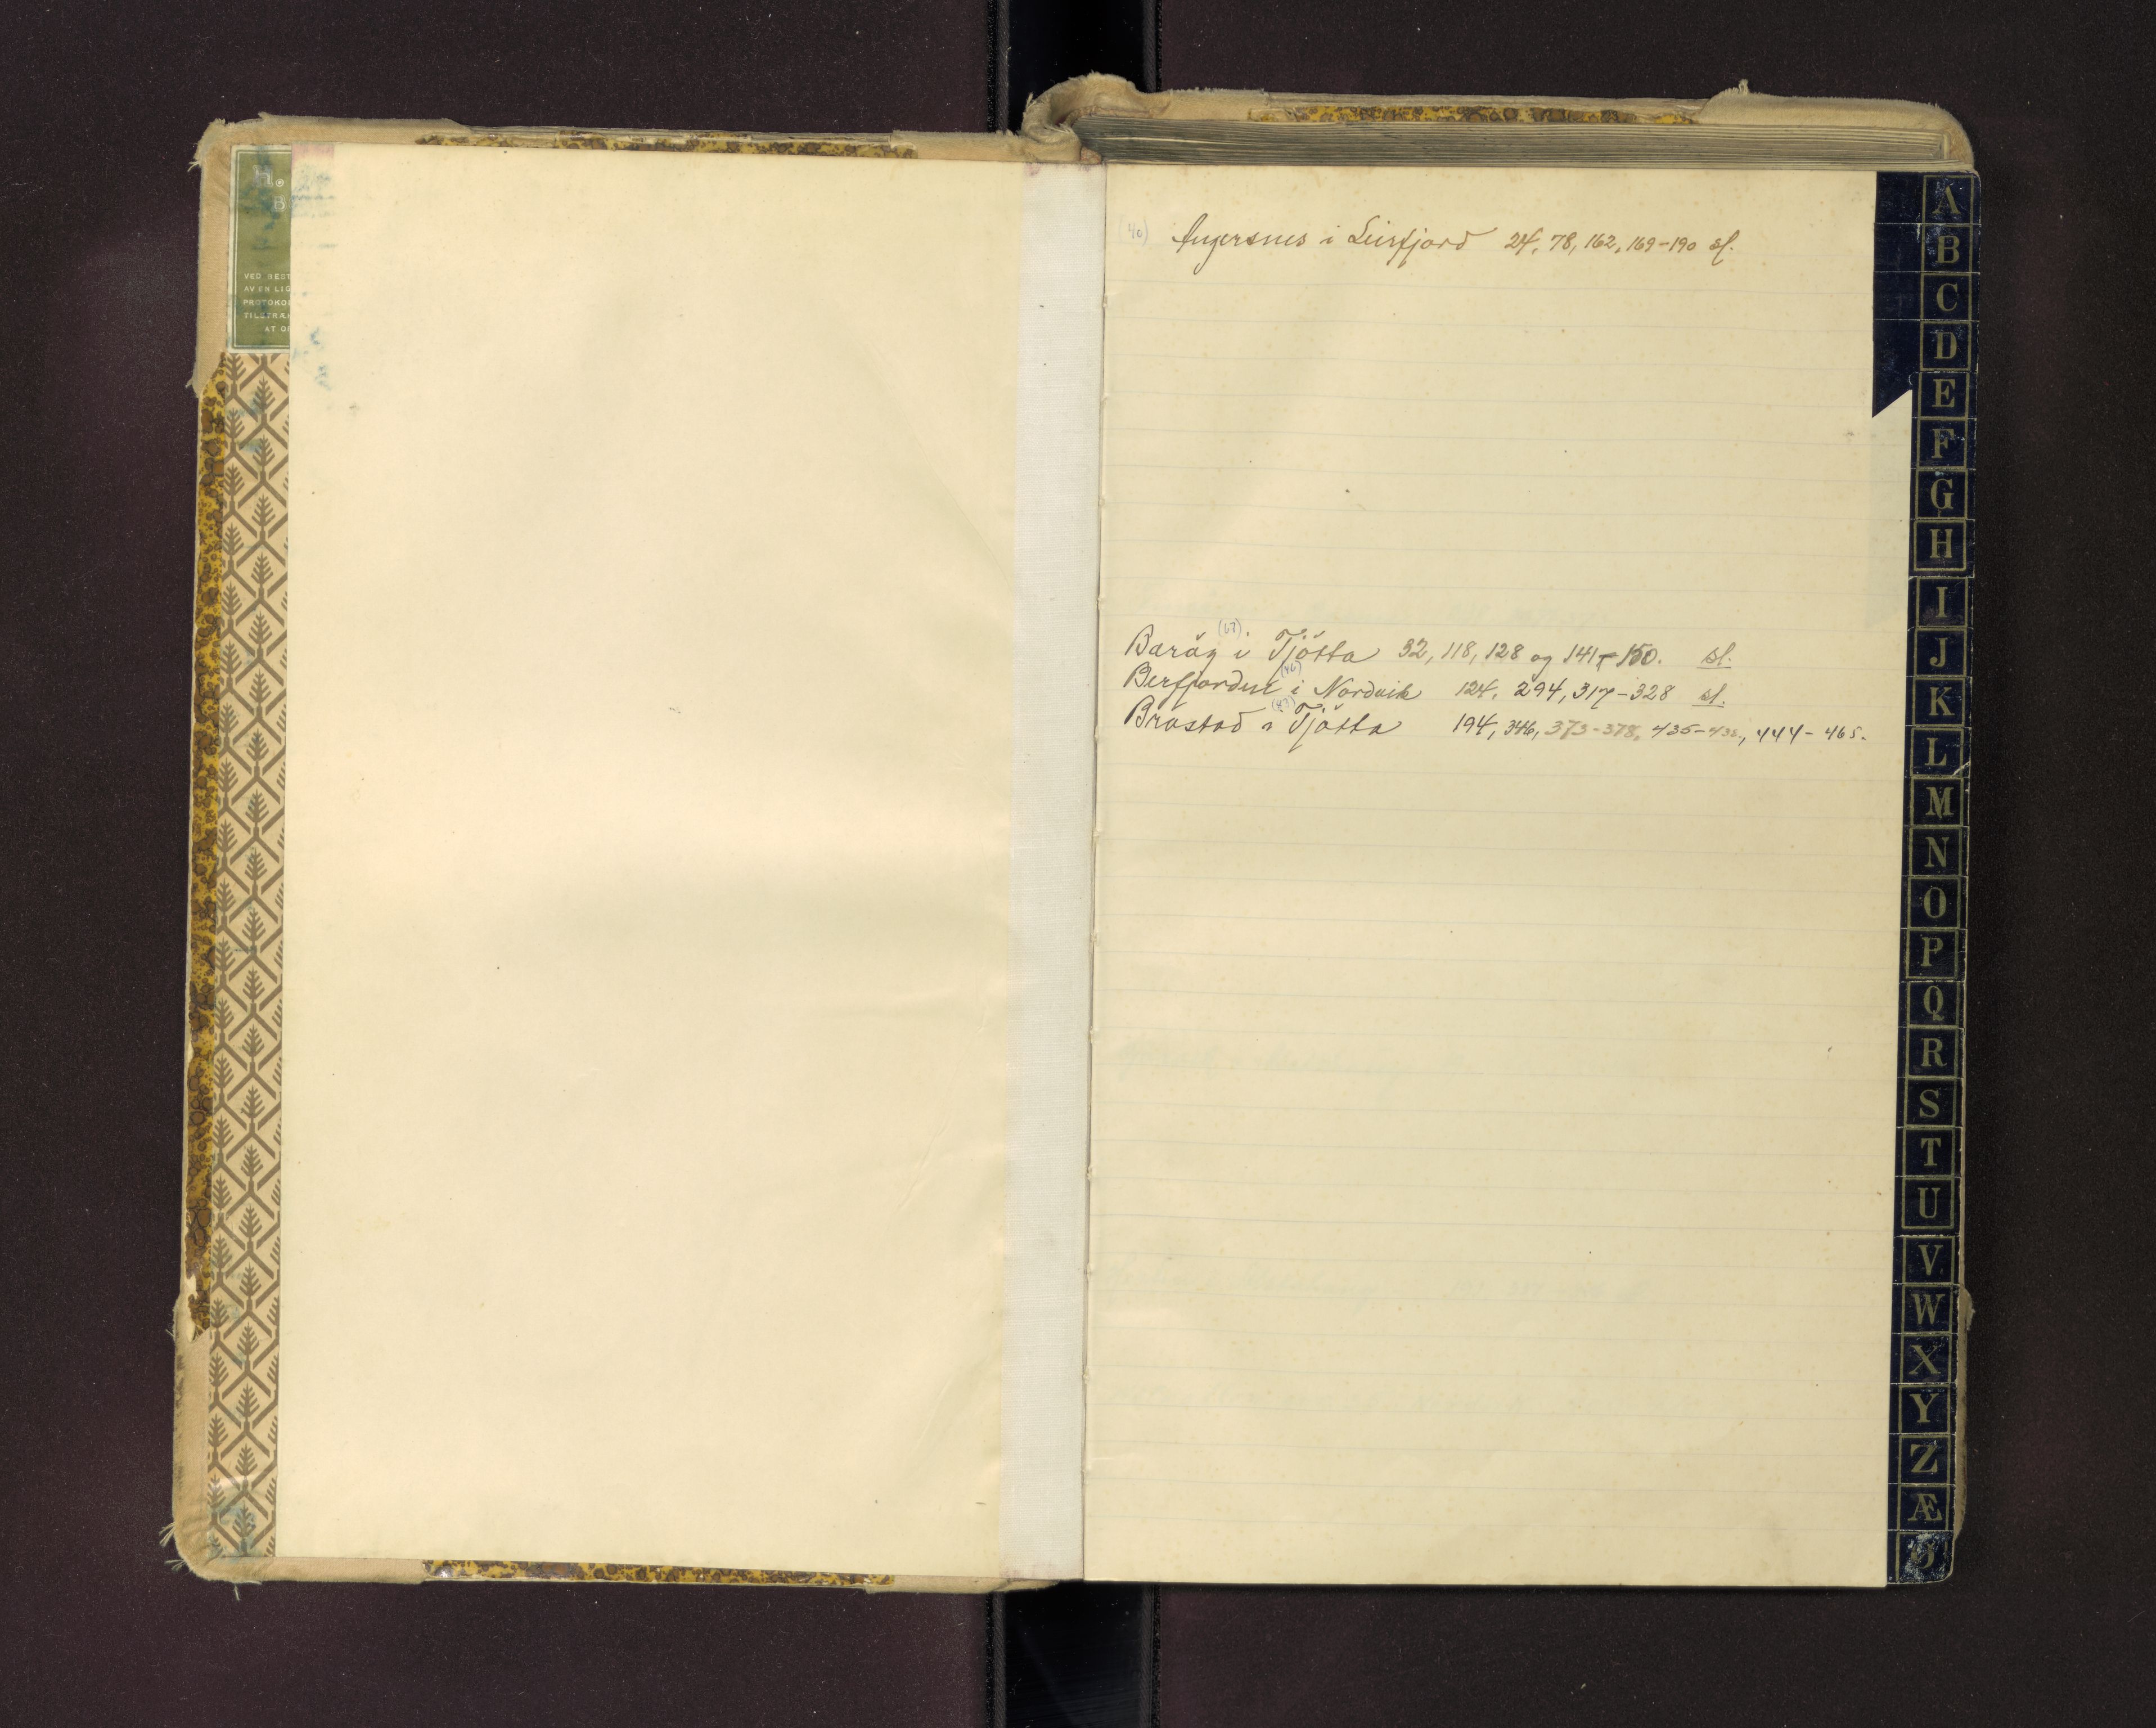 H.
B
VED BEST
AV EN LIG
PROTOKO
TILSTRÆ
AT OP
(40) Angersnes i Leirfjord 24, 78, 162, 169-190 sl.
(67)
Baråg i Tjøtta 32, 118, 128 og 141-150. sl.
(46)
Berfjorden i Nordvik 124, 294, 317-328 sl.
Brastad i Tjøtta 194, 346, 373-378, 435-438, 444-465.
A
B
C
D
E
F
G
H
I
J
K
L
M
N
O
P
Q
R
S
T
U
V
W
X
Y
Z
Æ
Ø